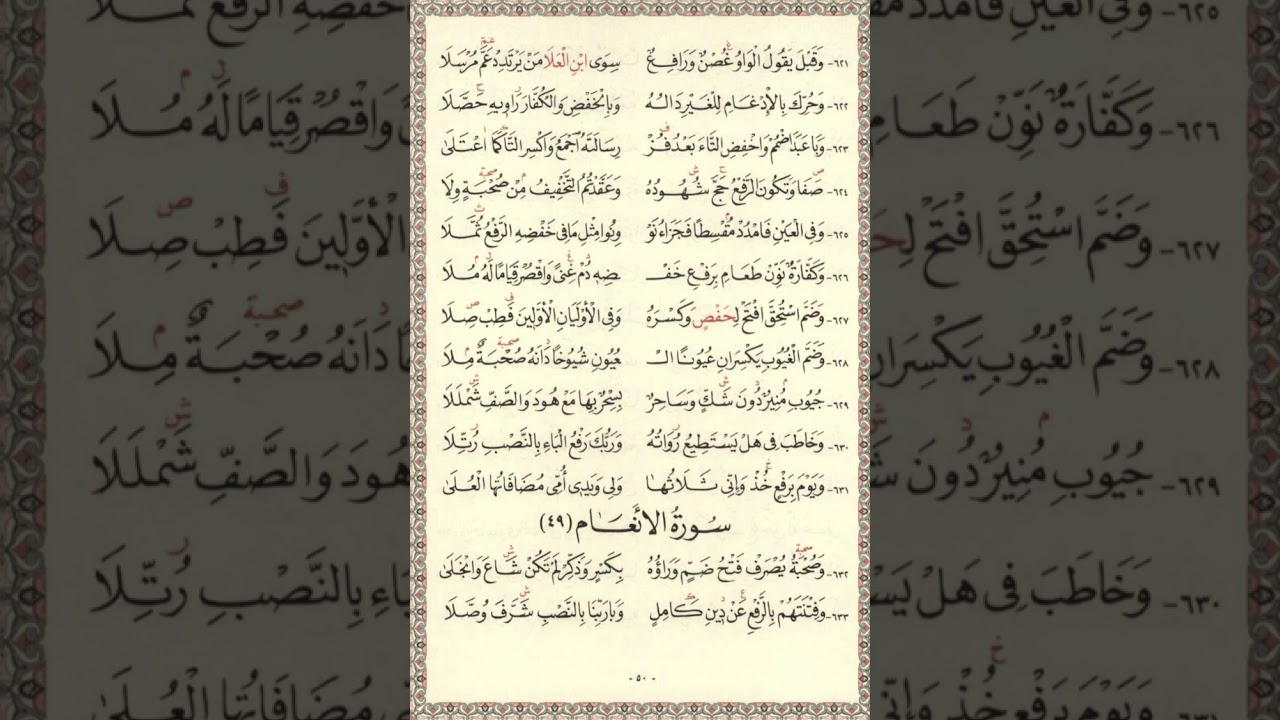 ٦٢١- وَقَبْلَ يَقُولُ الْوَاوُ غُصْنٌ وَرَافِعٌ سِوَى ابْنِ الْعَلَا مَنْ يَرْتَدِدْ عَمَّ مُرْسَلَا
٦٢٢- وَحُرِّكَ بِالْإِدْغَامِ لِلْغَيْرِ دَالُهُ وَبِالْخَفْضِ وَالْكُفَّارَ رَاوِيهِ حَصَّلَا
٦٢٣- وَبَا عَبَدَ اضْمُمْ وَاخْفِضِ التَّاءَ بَعْدُ فُزْ رِسَالَتَهُ اجْمَعْ وَاكْسِرِ التَّا كَمَا اعْتَلَى
٦٢٤- صَفَا وَتَكُونُ الرَّفْعُ حَجَّ شُهُودُهُ وَعَقَّدْتُمُ التَّخْفِيفُ مِنْ صُحْبَةٍ وِلَا
٦٢٥- وَفِي الْعَيْنِ فَامْدُدْ مُقْسِطًا فَجَزَاءُ نَوْ وِنُوا مِثْلُ مَا فِي خَفْضِهِ الرَّفْعُ ثُمَّلَا
٦٢٦- وَكَفَّارَةٌ نَوِّنْ طَعَامِ بِرَفْعِ خَفْـ ـضِهِ دُمْ غِنًى وَاقْصُرْ قِيَامًا لَهُ مُلَا
٦٢٧- وَضَمَّ اسْتُحِقَّ افْتَحْ لِحَفْصٍ وَكَسْرَهُ وَفِي الْأَوْلَيَانِ الْأَوَّلِينَ فَطِبْ صِلَا
٦٢٨- وَضَمَّ الْغُيُوبِ يَكْسِرَانِ عُيُونًا الْـ عُيُونِ شُيُوخًا دَانَهُ صُحْبَةٌ مِلَا
٦٢٩- جُيُوبِ مُنِيرٌ دُونَ شَكٍّ وَسَاحِرٌ بِسِحْرٌ بِهَا مَعْ هُودَ وَالصَّفِّ شَمْلَلَا
٦٣٠- وَخَاطَبَ فِي هَلْ يَسْتَطِيعُ رُوَاتُهُ وَرَبُّكَ رَفْعُ الْبَاءِ بِالنَّصْبِ رُتِّلَا
٦٣١- وَيَوْمَ بِرَفْعٍ خُذْ وَإِنِّي ثَلَاثُهَا وَلِي وَيَدِي أُمِّي مُضَافَاتُهَا الْعُلَى
سُورَةُ الْأَنْعَامِ (٤٩)
٦٣٢- وَصُحْبَةُ يُصْرَفْ فَتْحُ ضَمٍّ وَرَاؤُهُ بِكَسْرٍ وَذَكِّرْ لَمْ تَكُنْ شَاعَ وَانْجَلَى
٦٣٣- وَفِتْنَتُهُمْ بِالرَّفْعِ عَنْ دِينِ كَامِلٍ وَبَا رَبِّنَا بِالنَّصْبِ شَرَّفَ وُصَّلَا
- ٥٠ -